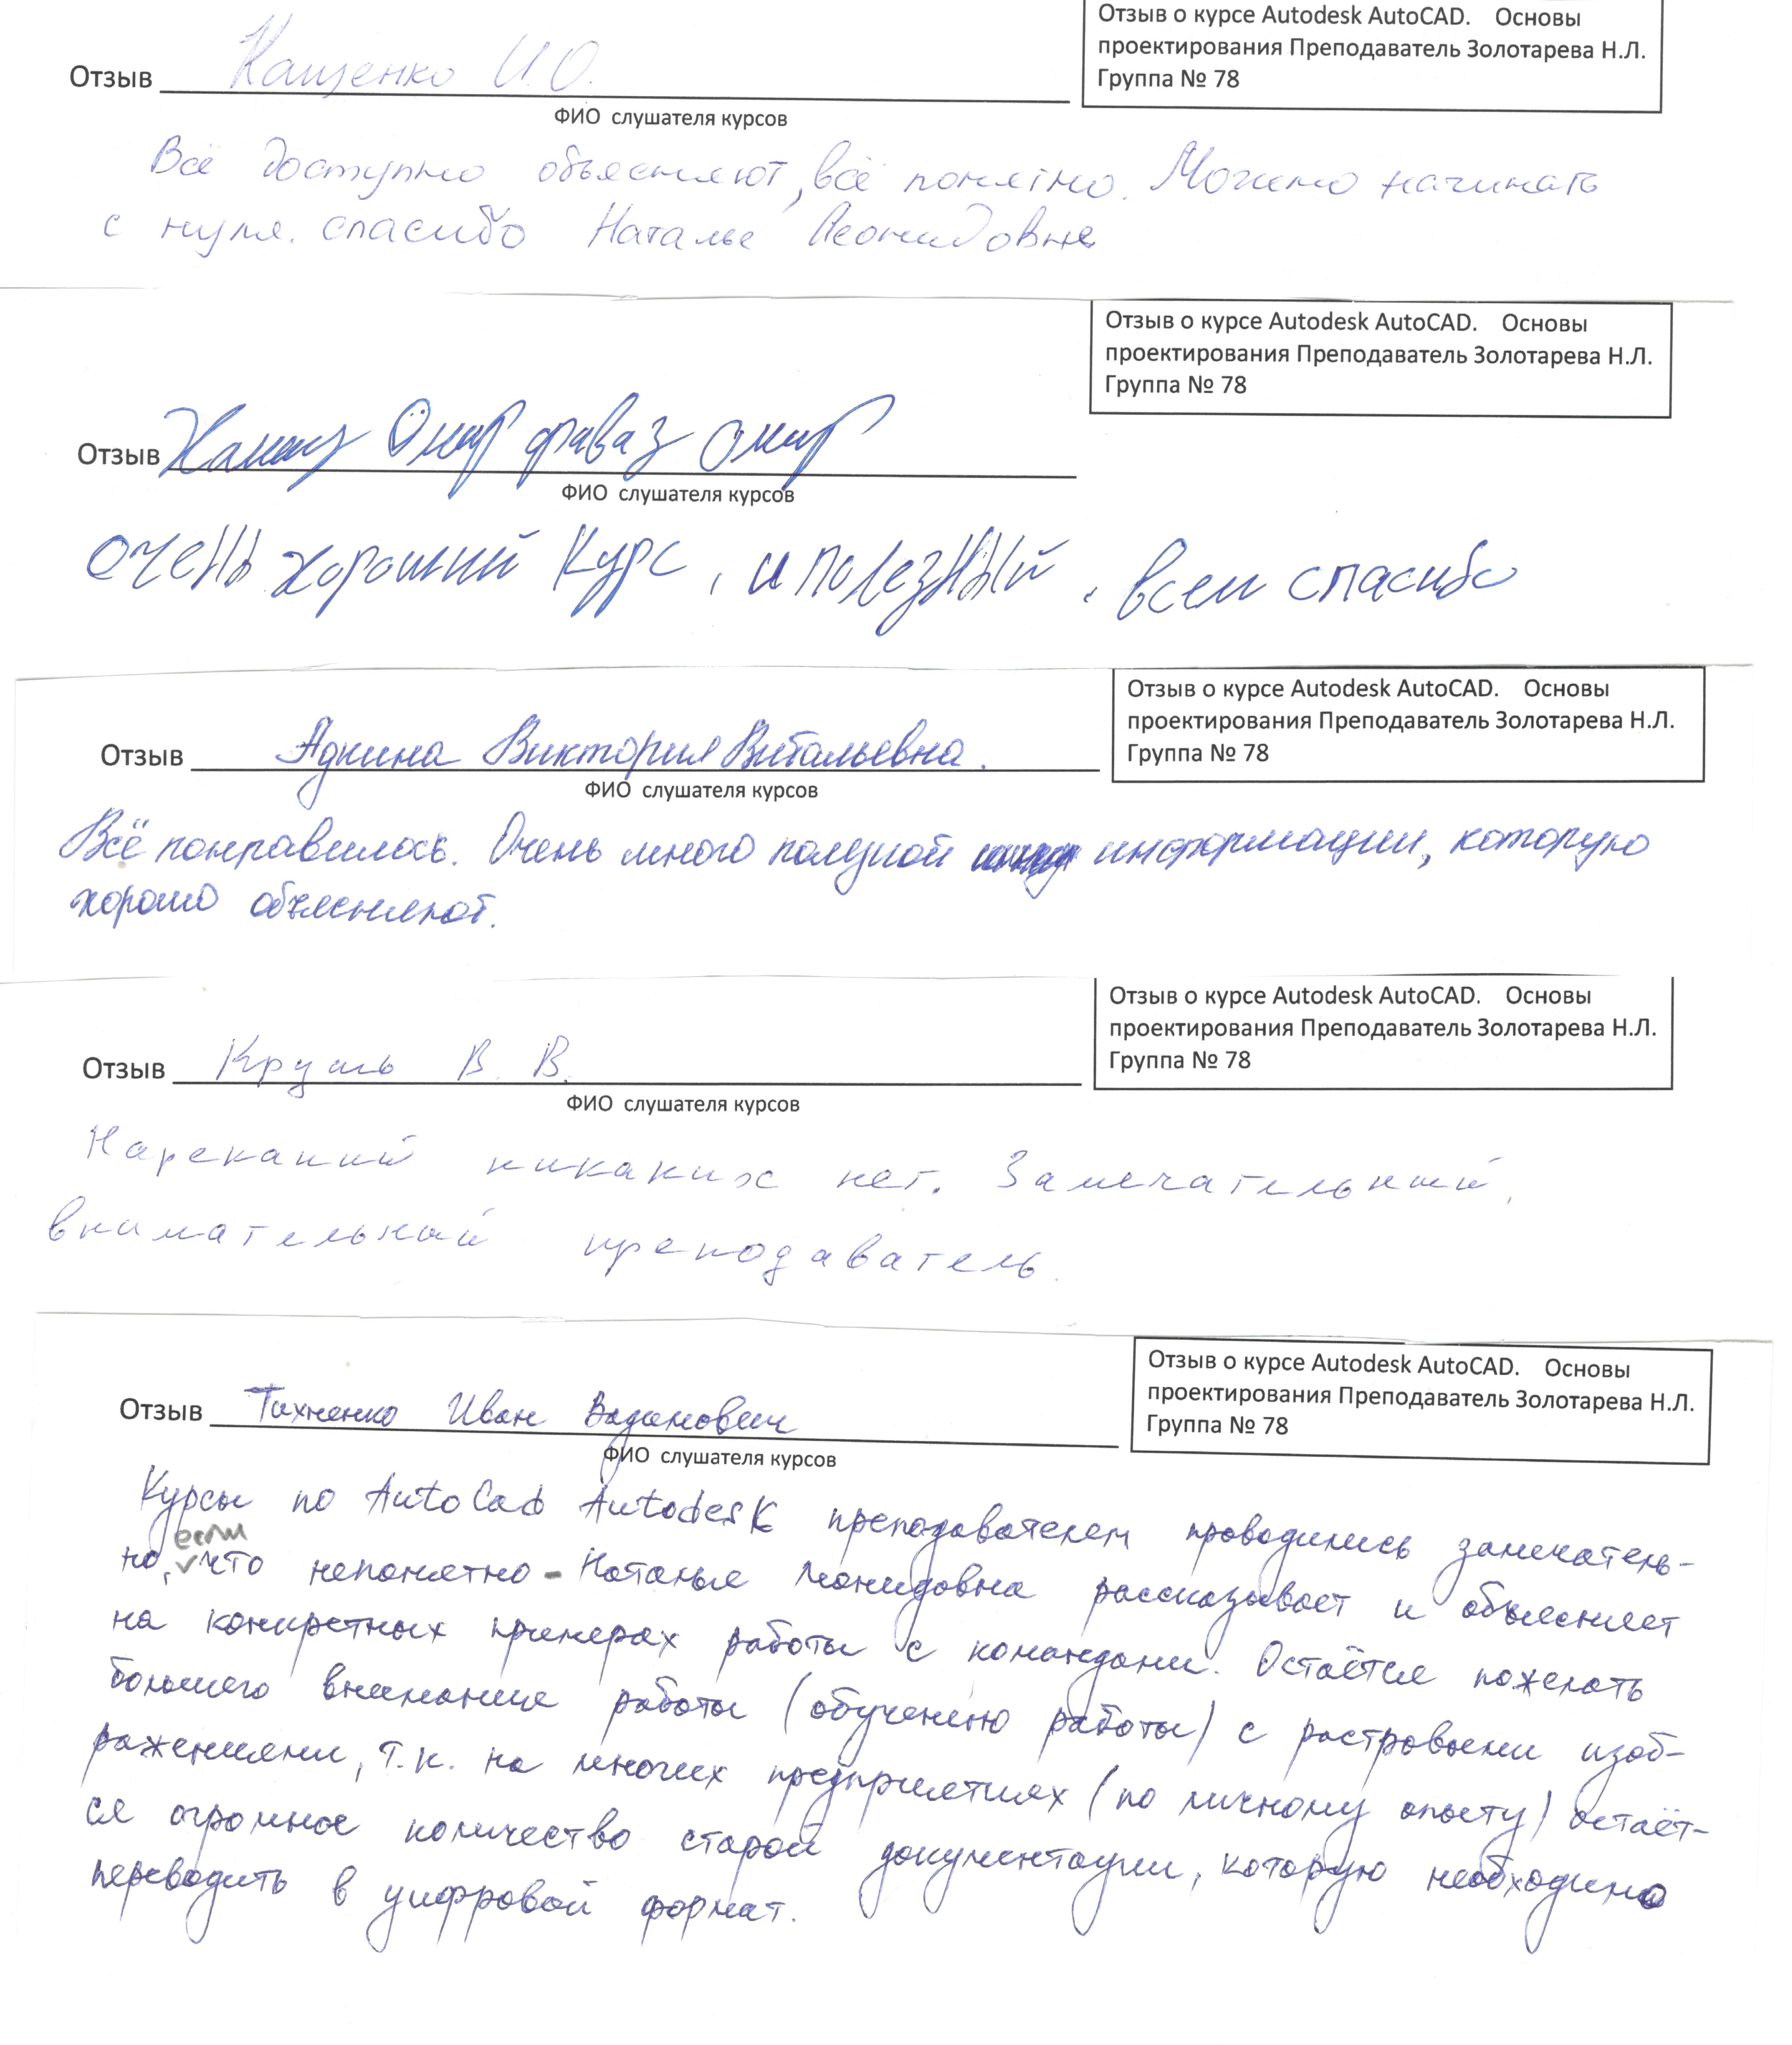 Отзыв о курсе Autodesk AutoCAD. Основы
проектирования Преподаватель Золотарева Н.Л.
Группа № 78
Отзыв Кащенко И.О.
ФИО слушателя курсов
Всё доступно объясняют, всё понятно. Можно начинать
с нуля. спасибо Наталье Леонидовне
Отзыв о курсе Autodesk AutoCAD. Основы
проектирования Преподаватель Золотарева Н.Л.
Группа № 78
Отзыв Омар фаваз омар
ФИО слушателя курсов
очень хороший курс, и полезный, всем спасибо
Отзыв о курсе Autodesk AutoCAD. Основы
проектирования Преподаватель Золотарева Н.Л.
Группа № 78
Отзыв Виктория Витальевна.
ФИО слушателя курсов
Всё понравилось. Очень много полезной информации, которую
хорошо объясняют.
Отзыв о курсе Autodesk AutoCAD. Основы
проектирования Преподаватель Золотарева Н.Л.
Группа № 78
Отзыв В. В.
ФИО слушателя курсов
Нареканий никаких нет. Замечательный,
внимательный преподаватель.
Отзыв о курсе Autodesk AutoCAD. Основы
проектирования Преподаватель Золотарева Н.Л.
Группа № 78
Отзыв Тихненко Иван Вадимович
ФИО слушателя курсов
Курсы по AutoCad Autodesk преподавателем проводились замечатель-
но, если что непонятно - Наталья Леонидовна рассказывает и объясняет
на конкретных примерах работы с командами. Остаётся пожелать
большего внимания работы (обучению работы) с растровыми изоб-
ражениями, т.к. на многих предприятиях (по личному опыту) остаёт-
ся огромное количество старой документации, которую необходимо
переводить в цифровой формат.